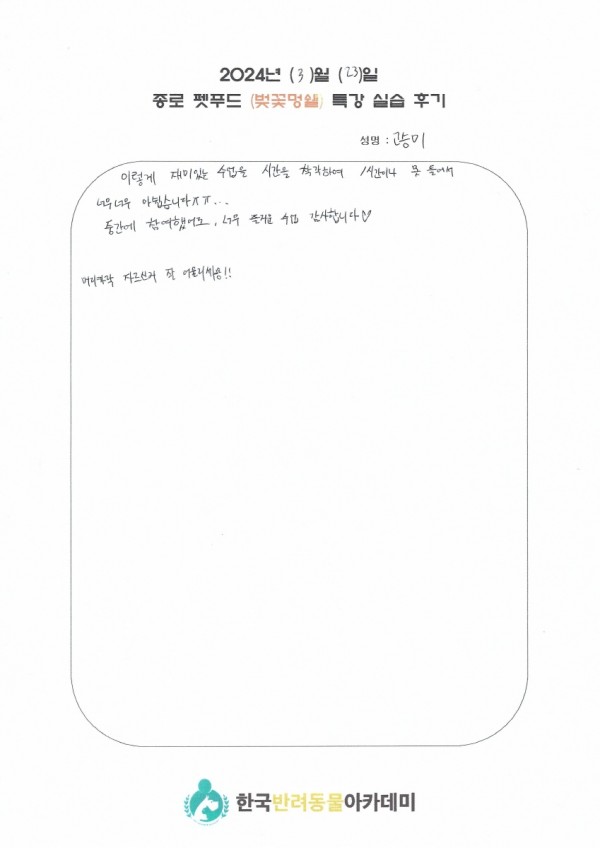 2024년 (3)월 (23)일
종로 펫푸드 (벚꽃명월) 특강 실습 후기
성명 : 고승미
이렇게 재미있는 수업을 시간을 착각하여 1시간이나 못 들어서
너무너무 아쉽습니다ㅠㅠ...
중간에 참여했어도, 너무 즐거운 수업 감사합니다♡
머리카락 자르신거 잘 어울리세용!!
한국반려동물아카데미